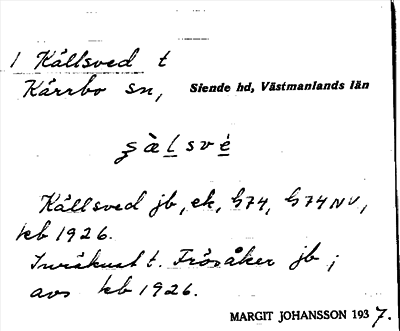 1 Källsved t
Kärrbo sn, Siende hd, Västmanlands län
s̨àlsvé
Källsved jb, ek, G74, G74NV,
kb 1926.
Inräknat t. Frösåker jb;
avs kb 1926.
MARGIT JOHANSSON 1937.